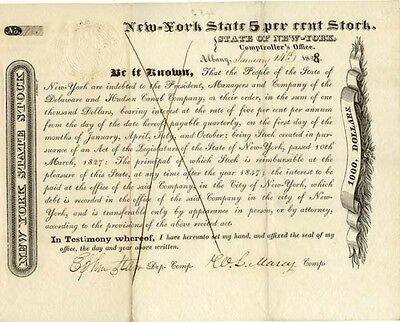 No.
New-York State 5 per cent Stock.
STATE OF NEW-YORK.
Comptroller's Office.
Albany, January 14th 1828
Be it Known, That the People of the State of
New-York are indebted to the President, Managers and Company of the
Delaware and Hudson Canal Company, or their order, in the sum of one
thousand Dollars, bearing interest at the rate of five per cent per annum
from the day of the date hereof, payable quarterly, on the first day of the
months of January, April, July, and October; being Stock created in pursu-
ance of an Act of the Legislature of the State of New-York, passed 10th
March, 1827: The principal of which Stock is reimbursable at the
pleasure of this State, at any time after the year 1847; the interest to be
paid at the office of the said Company, in the City of New-York, which
debt is recorded in the office of the said Company in the city of New-
York, and is transferable only by appearance in person, or by attorney,
according to the provisions of the above recited act.
In Testimony whereof, I have hereunto set my hand, and affixed the seal of my
office, the day and year above written.
Dep. Comp. W. L. Marcy Comp.
NEW YORK STATE STOCK
1000 DOLLARS